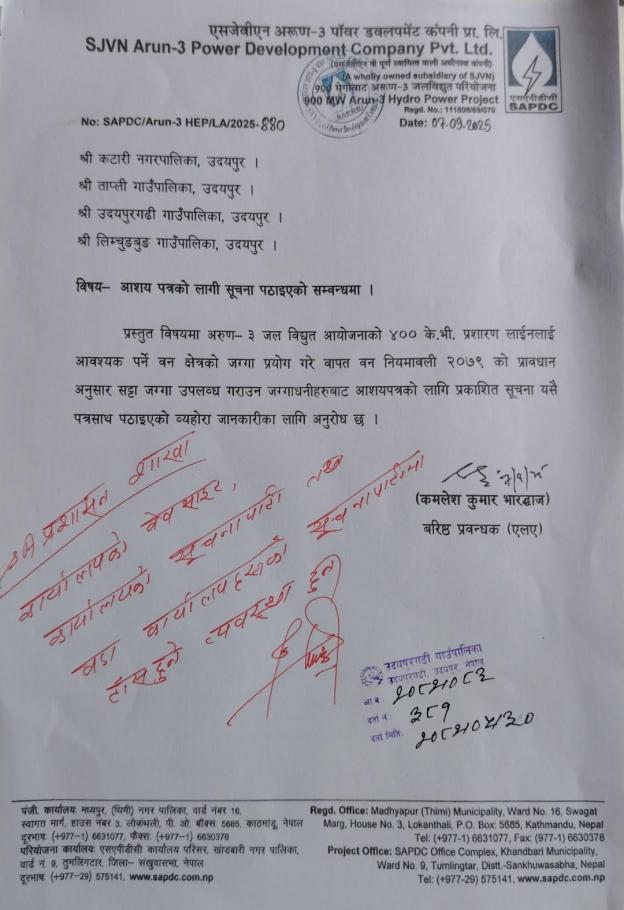 एसजेवीएन अरूण-3 पॉवर डवलपमेंट कंपनी प्रा. लि.
SJVN Arun-3 Power Development Company Pvt. Ltd.
(एसजेवीएन की पूर्ण स्वामित्व वाली अधीनस्थ कंपनी)
(A wholly owned subsidiary of SJVN)
900 मेगावाट अरूण-3 जलविद्युत परियोजना
900 MW Arun-3 Hydro Power Project
Regd. No.: 111808/69/070
एसएपीडीसी
SAPDC
No: SAPDC/Arun-3 HEP/LA/2025-880
Date: 07.09.2025
श्री कटारी नगरपालिका, उदयपुर ।
श्री ताप्ली गाउँपालिका, उदयपुर ।
श्री उदयपुरगढी गाउँपालिका, उदयपुर ।
श्री लिम्चुङबुङ गाउँपालिका, उदयपुर ।
विषय– आशय पत्रको लागी सूचना पठाइएको सम्बन्धमा ।
प्रस्तुत विषयमा अरुण– ३ जल विद्युत आयोजनाको ४०० के.भी. प्रशारण लाईनलाई
आवश्यक पर्ने वन क्षेत्रको जग्गा प्रयोग गरे वापत वन नियमावली २०७९ को प्रावधान
अनुसार सट्टा जग्गा उपलव्ध गराउन जग्गाधनीहरुबाट आशयपत्रको लागि प्रकाशित सूचना यसै
पत्रसाथ पठाइएको व्यहोरा जानकारीका लागि अनुरोध छ ।
(कमलेश कुमार भारद्वाज)
बरिष्ठ प्रवन्धक (एलए)
प्रशासन शाखा
कार्यालयको वेव साइट,
कार्यालयको सूचनापाटी तथा
वडा कार्यालयहरुको सूचनापाटीमा
टाँस हुने व्यवस्था हुन
उदयपुरगढी गाउँपालिका
उदयपुरगढी, उदयपुर, नेपाल
आ.ब.: २०८२।०८३
दर्ता नं.: ३८१
दर्ता मिति: २०८२।०५।३०
पंजी. कार्यालय: मध्यपुर, (थिमी) नगर पालिका, वार्ड नंबर 16,
स्वागत मार्ग, हाउस नंबर 3, लोकंथली, पी. ओ. बॉक्स: 5685, काठमांडू, नेपाल
दूरभाष: (+977-1) 6631077, फैक्स: (+977-1) 6630378
परियोजना कार्यालय: एसएपीडीसी कार्यालय परिसर, खांडबारी नगर पालिका,
वार्ड नं. 9, तुमलिंगटार, जिला– संखुवासभा, नेपाल
दूरभाष: (+977-29) 575141, www.sapdc.com.np
Regd. Office: Madhyapur (Thimi) Municipality, Ward No. 16, Swagat
Marg, House No. 3, Lokanthali, P.O. Box: 5685, Kathmandu, Nepal
Tel: (+977-1) 6631077, Fax: (+977-1) 6630378
Project Office: SAPDC Office Complex, Khandbari Municipality,
Ward No. 9, Tumlingtar, Distt.-Sankhuwasabha, Nepal
Tel: (+977-29) 575141, www.sapdc.com.np